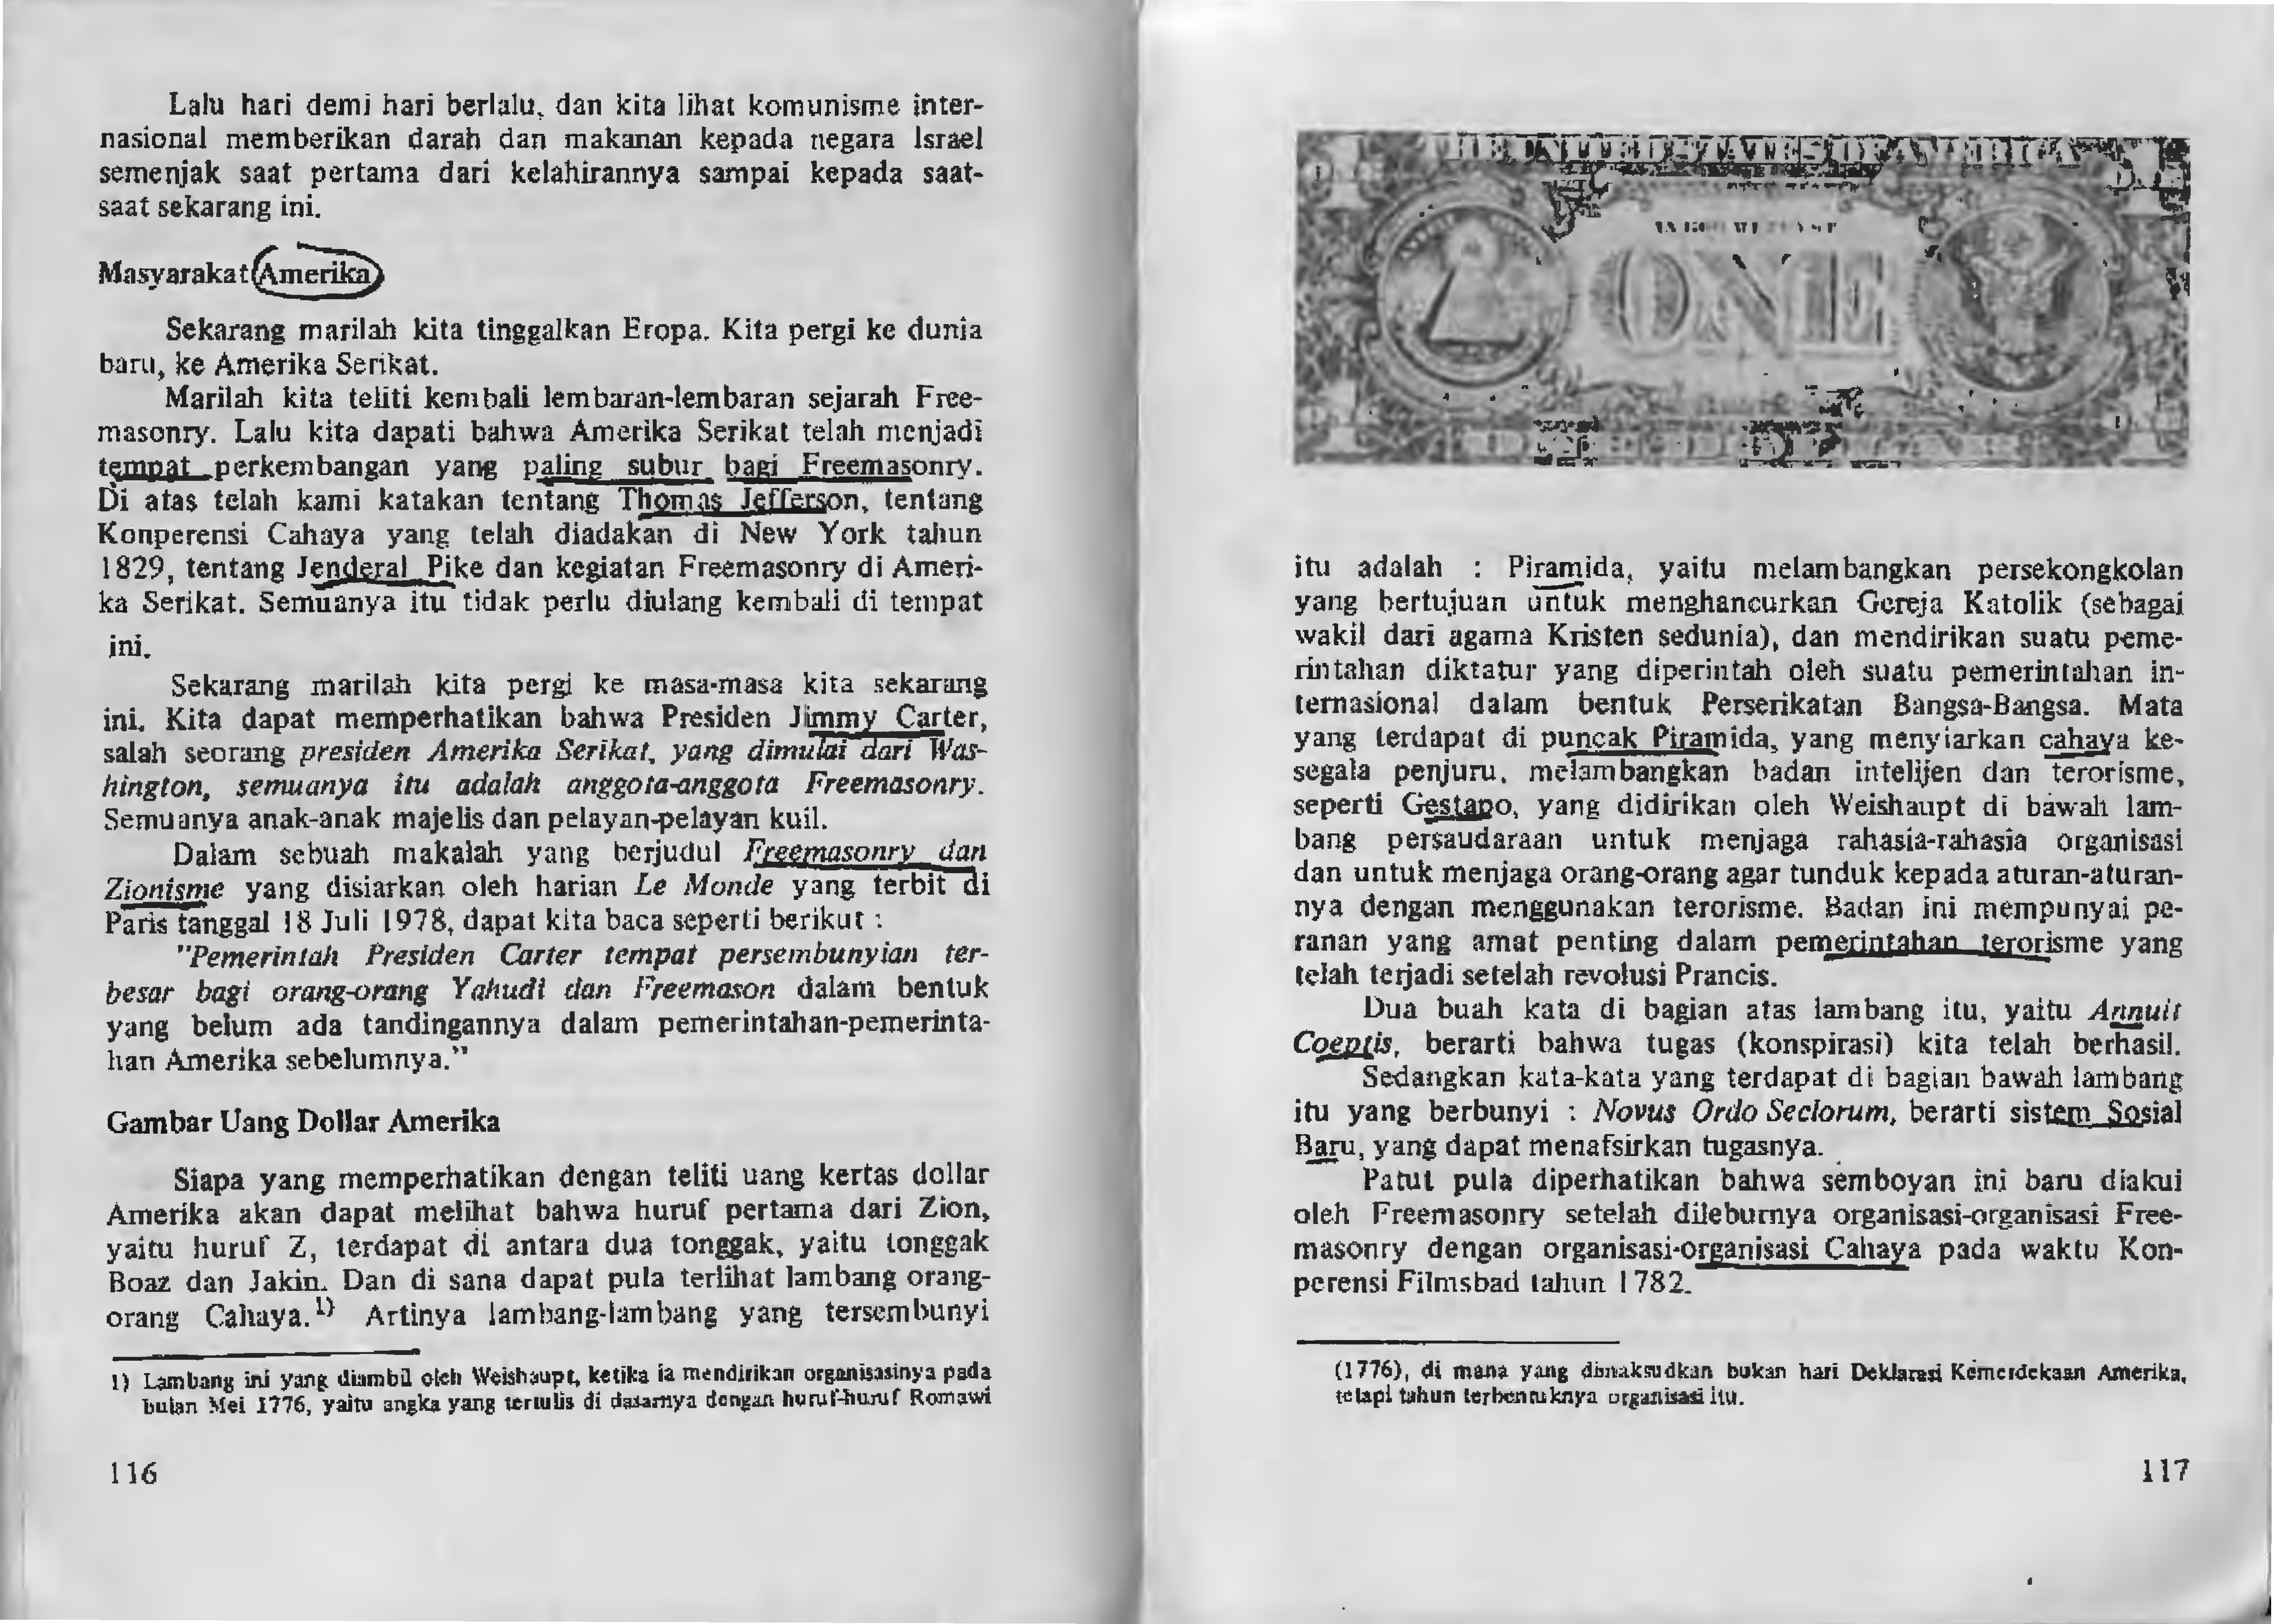 Lalu hari demi hari berlalu, dan kita lihat komunisme inter-
nasional memberikan darah dan makanan kepada negara Israel
semenjak saat pertama dari kelahirannya sampai kepada saat-
saat sekarang ini.
Masyarakat Amerika
Sekarang marilah kita tinggalkan Eropa. Kita pergi ke dunia
baru, ke Amerika Serikat.
Marilah kita teliti kembali lembaran-lembaran sejarah Free-
masonry. Lalu kita dapati bahwa Amerika Serikat telah menjadi
tempat perkembangan yang paling subur bagi Freemasonry.
Di atas telah kami katakan tentang Thomas Jefferson, tentang
Konperensi Cahaya yang telah diadakan di New York tahun
1829, tentang Jenderal Pike dan kegiatan Freemasonry di Ameri-
ka Serikat. Semuanya itu tidak perlu diulang kembali di tempat
ini.
Sekarang marilah kita pergi ke masa-masa kita sekarang
ini. Kita dapat memperhatikan bahwa Presiden Jimmy Carter,
salah seorang presiden Amerika Serikat, yang dimulai dari Was-
hington, semuanya itu adalah anggota-anggota Freemasonry.
Semuanya anak-anak majelis dan pelayan-pelayan kuil.
Dalam sebuah makalah yang berjudul Freemasonry dan
Zionisme yang disiarkan oleh harian Le Monde yang terbit di
Paris tanggal 18 Juli 1978, dapat kita baca seperti berikut :
"Pemerintah Presiden Carter tempat persembunyian ter-
besar bagi orang-orang Yahudi dan Freemason dalam bentuk
yang belum ada tandingannya dalam pemerintahan-pemerinta-
han Amerika sebelumnya."
Gambar Uang Dollar Amerika
Siapa yang memperhatikan dengan teliti uang kertas dollar
Amerika akan dapat melihat bahwa huruf pertama dari Zion,
yaitu huruf Z, terdapat di antara dua tonggak, yaitu tonggak
Boaz dan Jakin. Dan di sana dapat pula terlihat lambang orang-
orang Cahaya.1) Artinya lambang-lambang yang tersembunyi
1) Lambang ini yang diambil oleh Weishaupt, ketika ia mendirikan organisasinya pada
bulan Mei 1776, yaitu angka yang tertulis di dasarnya dengan huruf-huruf Romawi
116
THE UNITED STATES OF AMERICA
ONE
itu adalah : Piramida, yaitu melambangkan persekongkolan
yang bertujuan untuk menghancurkan Gereja Katolik (sebagai
wakil dari agama Kristen sedunia), dan mendirikan suatu peme-
rintahan diktatur yang diperintah oleh suatu pemerintahan in-
ternasional dalam bentuk Perserikatan Bangsa-Bangsa. Mata
yang terdapat di puncak Piramida, yang menyiarkan cahaya ke-
segala penjuru, melambangkan badan intelijen dan terorisme,
seperti Gestapo, yang didirikan oleh Weishaupt di bawah lam-
bang persaudaraan untuk menjaga rahasia-rahasia organisasi
dan untuk menjaga orang-orang agar tunduk kepada aturan-aturan-
nya dengan menggunakan terorisme. Badan ini mempunyai pe-
ranan yang amat penting dalam pemerintahan terorisme yang
telah terjadi setelah revolusi Prancis.
Dua buah kata di bagian atas lambang itu, yaitu Annuit
Coeptis, berarti bahwa tugas (konspirasi) kita telah berhasil.
Sedangkan kata-kata yang terdapat di bagian bawah lambang
itu yang berbunyi : Novus Ordo Seclorum, berarti sistem Sosial
Baru, yang dapat menafsirkan tugasnya.
Patut pula diperhatikan bahwa semboyan ini baru diakui
oleh Freemasonry setelah dileburnya organisasi-organisasi Free-
masonry dengan organisasi-organisasi Cahaya pada waktu Kon-
perensi Filmsbad tahun 1782.
(1776), di mana yang dimaksudkan bukan hari Deklarasi Kemerdekaan Amerika,
tetapi tahun terbentuknya organisasi itu.
117